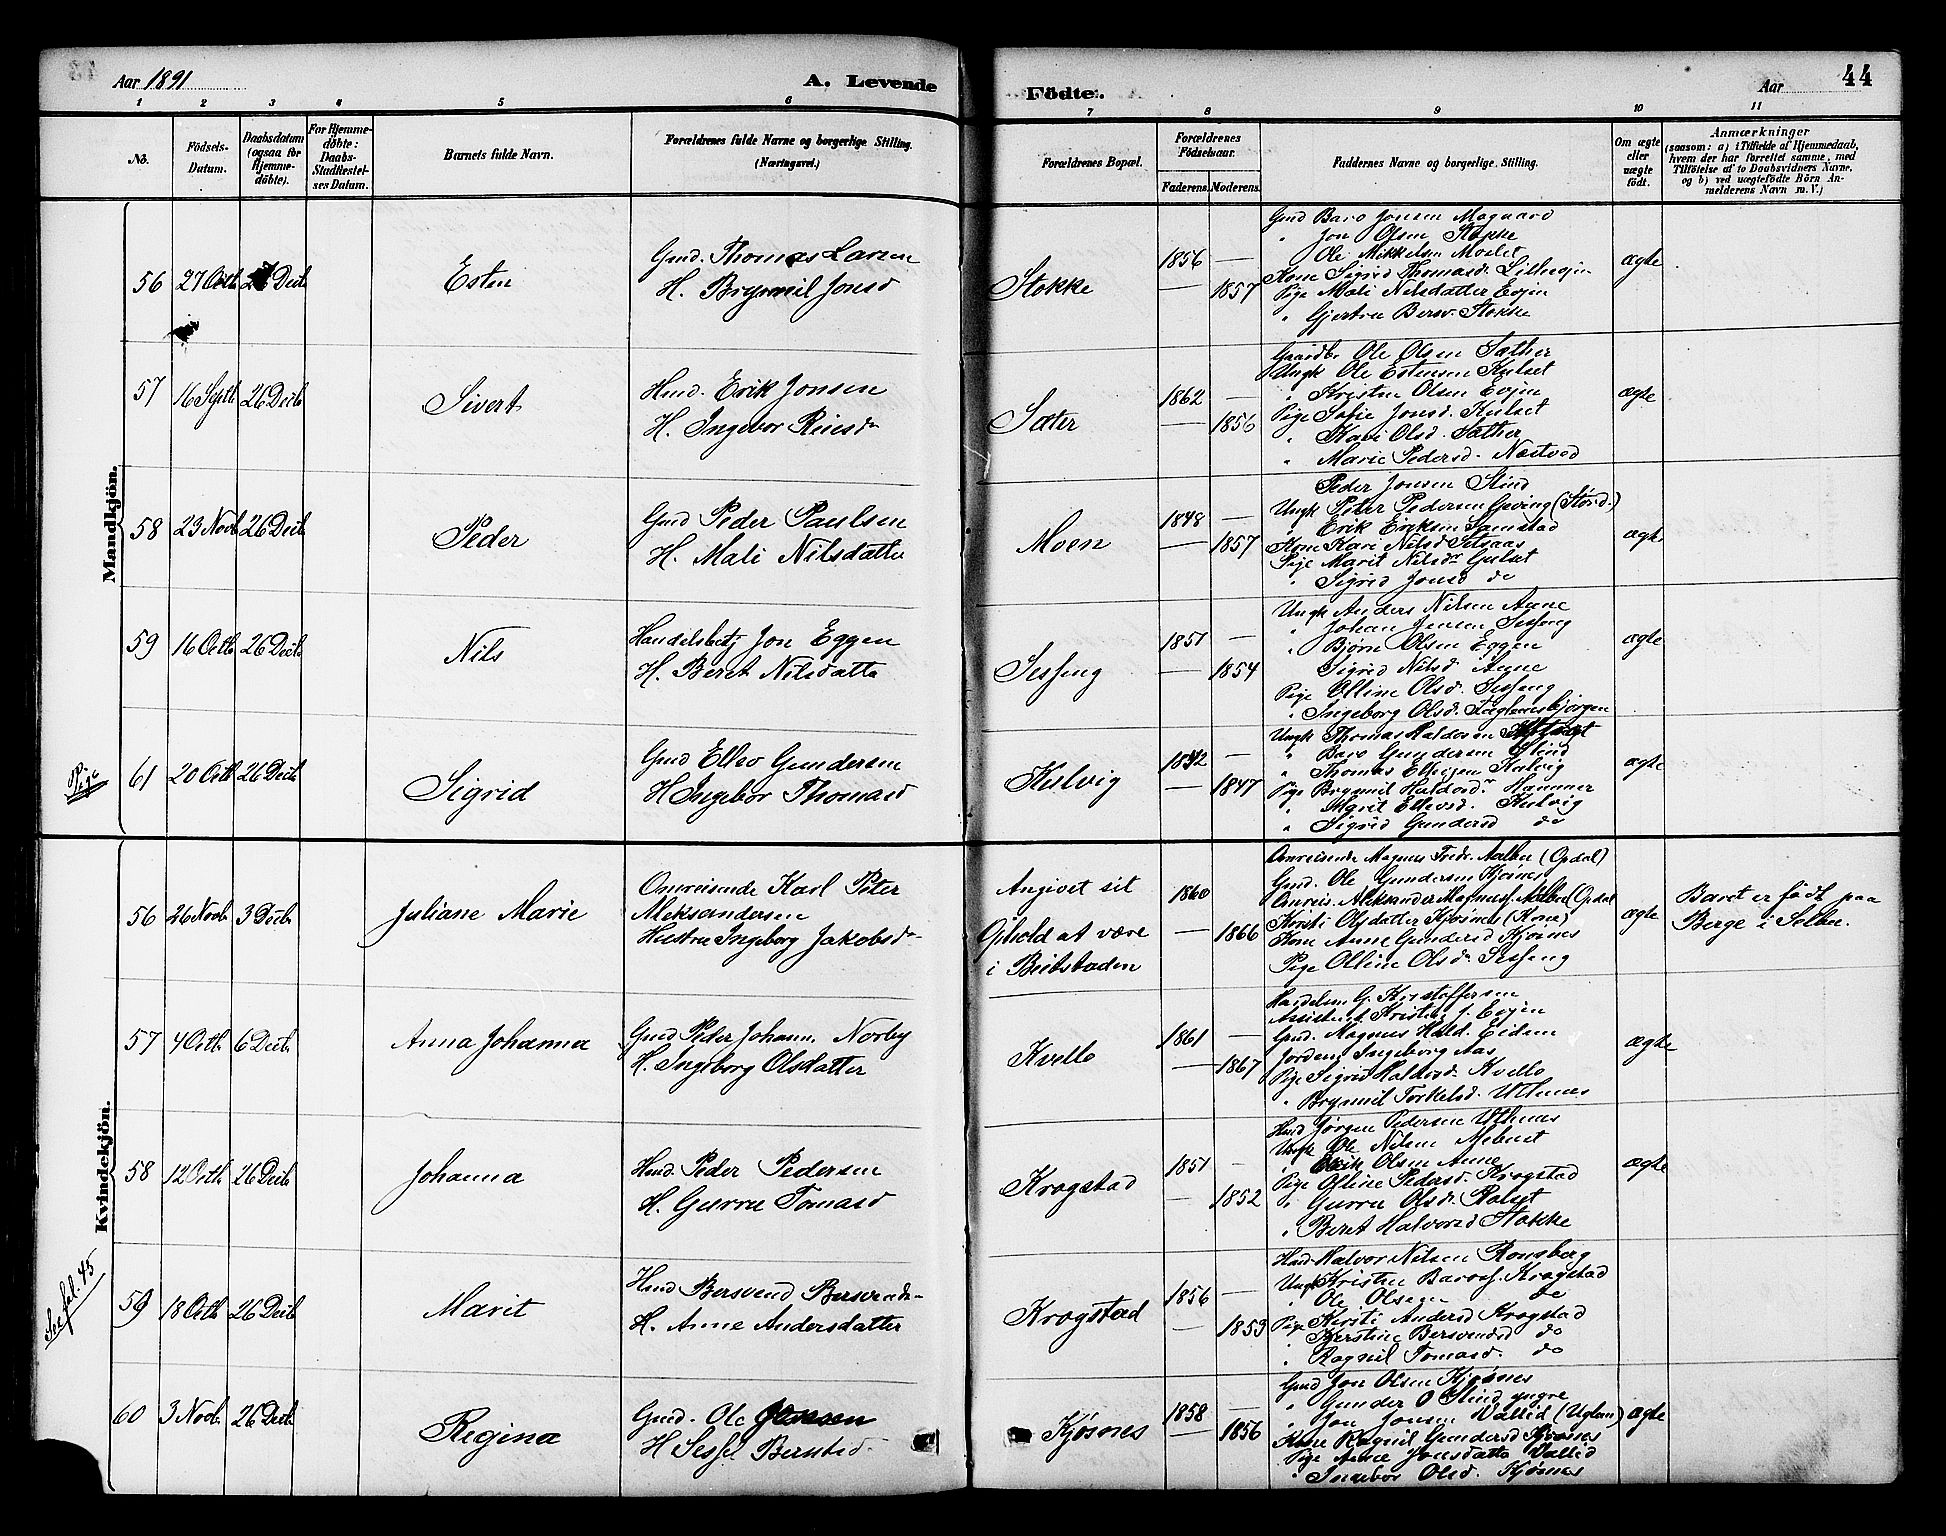 Aar 1891
A. Levende
Födte.
Aar
44
1 2 3 4 5 6 7 8 9 10 11
No.
Födsels-Datum.
Daabsdatum (ogsaa for Hjemme-döbte).
For Hjemme-döbte: Daabs-Stadfæstel-ses Datum.
Barnets fulde Navn.
Forældrenes fulde Navne og borgerlige Stilling. (Næringsvei.)
Forældrenes Bopæl.
Forældrenes Födselsaar.
Faderens. Moderens.
Faddernes Navne og borgerlige Stilling.
Om ægte eller uægte födt.
Anmærkninger
(saasom: a) i Tilfælde af Hjemmedaab, hvem der har forrettet samme, med Tilföielse af to Daabsvidners Navne, og b) ved uægtefödte Börn An-melderens Navn m. V.)
Mandkjön.
56 27 Octb Decb Esten
Gmd. Thomas Larsen
H. Brynnil Jonsd
Stokke 1856 — 1857
Gmd Baro Jonsen Mogaard
" Jon Olsen Stokke
Ole Mikkelsen Moslet
Kone Sigrid Thomasd.
Pige Mali Nilsdatter Evjen
" Gjertru Bersv. Stokke
ægte
57 16 Septb 26 Decb Sivert
Hmd. Erik Jonsen
H. Ingebor
Sæter 1862 — 1856
Gaardb. Ole Olsen Sæther
Ungk Ole Estensen Kulset
" Kristen Olsen Evjen
Pige Sofie Jonsd. Kulset
" Kari Olsd. Sæther
" Marie Pedersd. Næstvod
ægte
58 23 Novb 26 Decb Peder
Gmd Peder Paulsen
H. Mali Nilsdatter
Moen 1848 — 1857
Peder Jonsen Slind
Ungk Peter Pedersen Geving (Störd.)
Erik Eriksen Samstad
Kone Kari Nilsd Setsaas
Pige Marit Nilsdr Gulset
" Sigrid Jonsd do
ægte
59 16 Octb 26 Decb Nils
Handelsbetj Jon Eggen
H. Beret Nilsdatte
Sesseng 1851 — 1854
Ungk Anders Nilsen Aune
" Johan Jensen Sesseng
" Bjørn Olsen Eggen
Sigrid Nilsd Aune
Pige Olline Olsd. Sesseng
" Ingeborg Olsd.
ægte
Pige
61 20 Octb 26 Decb Sigrid
Gmd Ellev Gundersen
H Ingebor Thomasd
Kulvig 1842 — 1847
Ungk Thomas Haldorsen
" Baro Gundersen Slind
" Thomas Ellevsen Kulvig
Pige Brynnil Haldorsdr Hammer
" Marit Ellevsd. Kulvig
" Sigrid Gundersd do
ægte
Kvindekjön.
56 26 Novb 3 Decb Juliane Marie
Omreisende Karl Peter
Aleksandersen
Hustru Ingeborg Jakobsdr
Angivet sit
Ophold at være
i Beitstaden
1860 — 1866
Omreisende Magnus Fredr. Aalber (Opdal)
Gmd. Ole Gundersen Kjøsnes
Omreis. Aleksander Magnuss. Aalber (Opdal
Kirsti Olsdatter Kjøsnes (Kone)
Kone Anne Gundersd Kjøsnes
Pige Olline Olsdr Sesseng
ægte
Baret er født paa
Berge i Selbu.
57 4 Octb 6 Decb Anna Johanna
Gmd Peder Johann. Norby
H. Ingeborg Olsdatter
Kvello 1861 — 1867
Handelsm G. Kristoffersen
Assistent Kristen J. Evjen
Gmd. Magnus Hald. Eidem
Jordem. Ingeborg Aas
Pige Sigrid Haldosd. Kvello
" Brynnil Torkelsd. Uthnes
ægte
58 12 Octb 26 Decb Johanna
Hmd Peder Pedersen
H. Gurru Tomasd
Krogstad 1851 — 1852
Hmd Jørgen Pedersen Uthnes
Ungk Ole Nilsen Mebust
" Erik Olsen Aune
Pige Olline Pedersd. Krogstad
" Gurru Olsd. Rolset
" Beret Halvorsd Stokke
ægte
See fol. 45
59 18 Octb 26 Decb Marit
Hmd Bersvend Bersvends.
H. Anne Andersdatter
Krogstad 1856 — 1859
Hmd Halvor Nilsen Ronsberg
Ungk Kristen Baross. Krogstad
" Ole Olsen do
Pige Kirsti Andersd Krogstad
" Kerstine Bersvendsd do
" Ragnil Tomasd. do
60 3 Novb 26 Decb Regina
Gmd. Ole Jensen
H
Kjøsnes 1858 — 1856
Gmd Jon Olsen Kjøsnes
" Gunder O Slind yngre
" Jon Jonsen Vallid (Uglan)
Kone Ragnil Gundersd Kjøsnes
Pige Anne Jonsdatte Vallid
" Ingebor Olsd. Kjøsnes
ægte